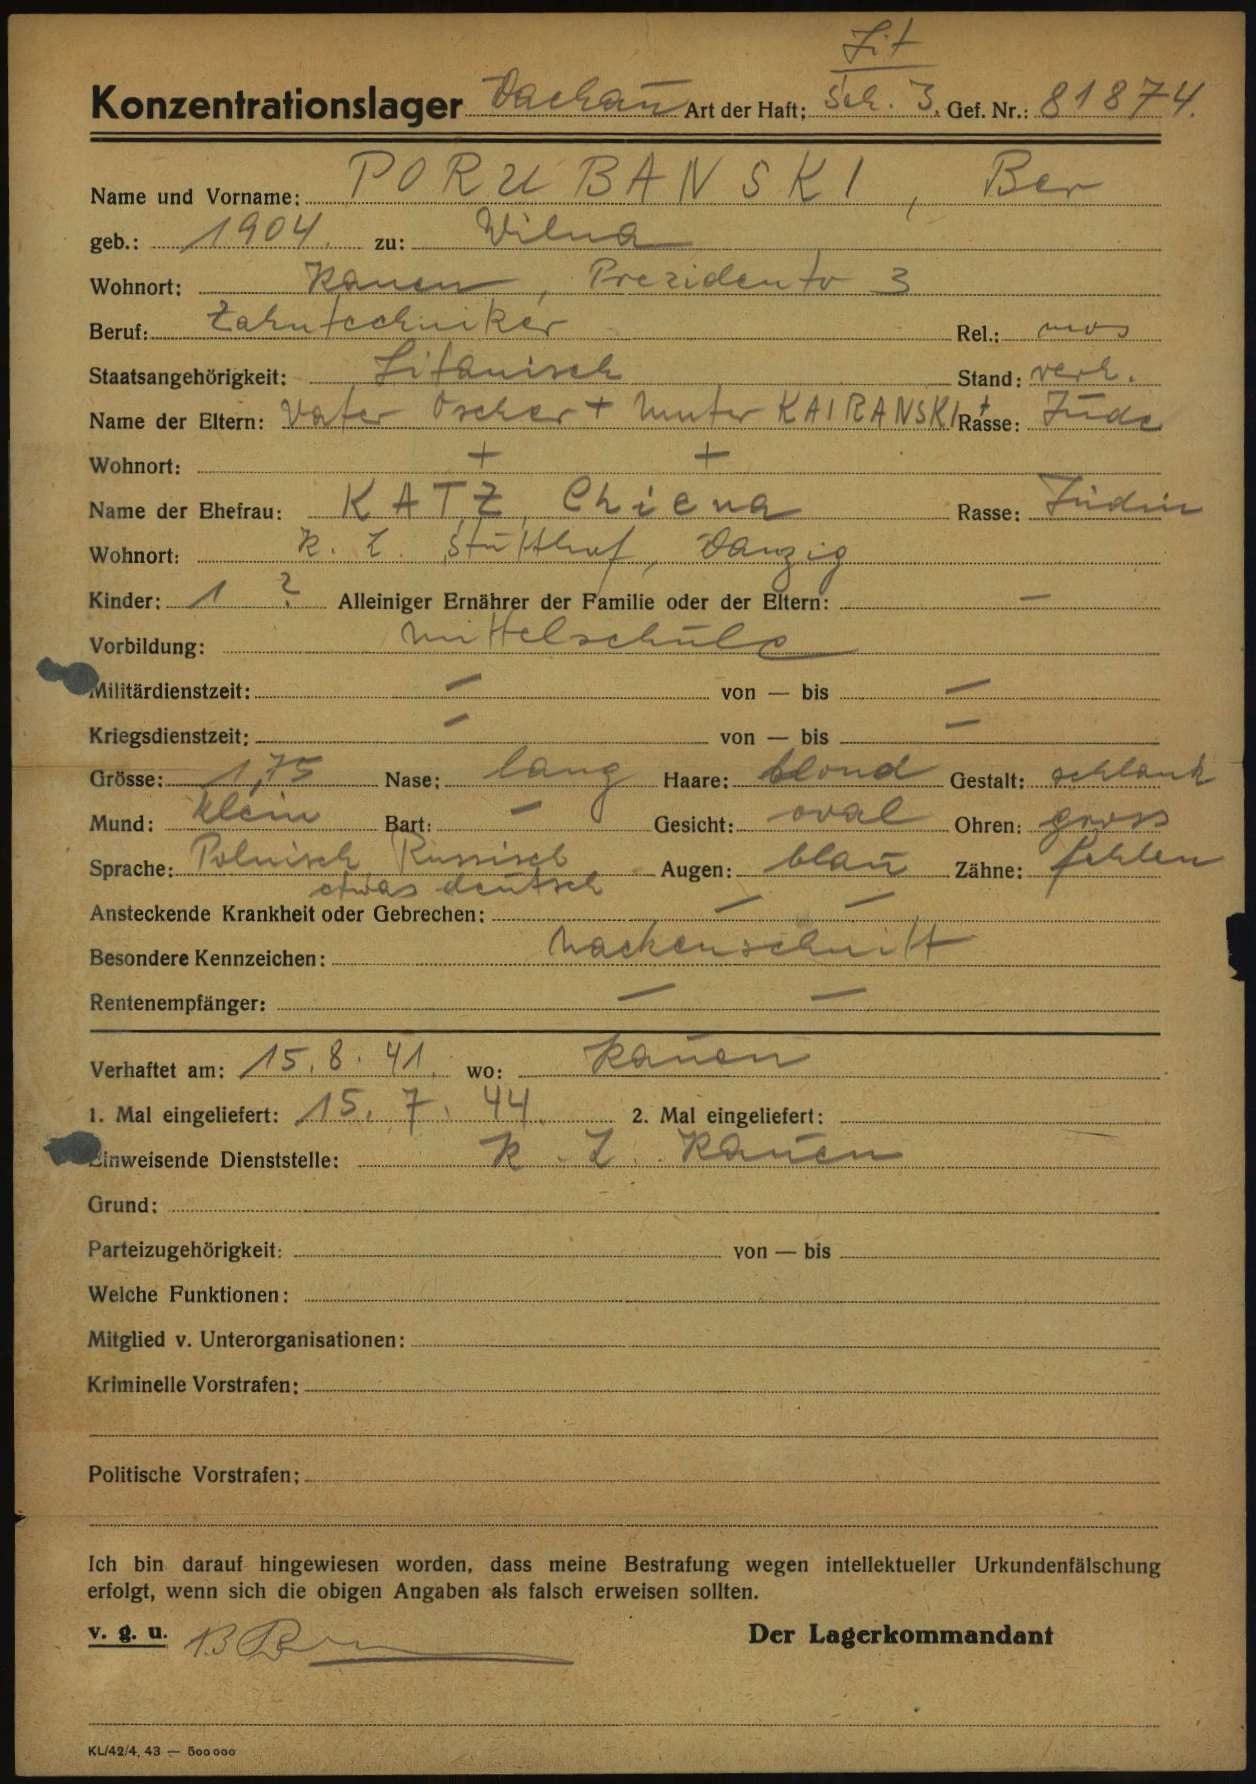 Lit
Konzentrationslager Dachau Art der Haft: Sch. J. Gef. Nr.: 81874.
Name und Vorname: PORUBANSKI, Ber
geb.: 1904. zu: Wilna
Wohnort: Kauen, Prezidento 3
Beruf: Zahntechniker Rel.: mos
Staatsangehörigkeit: Litauisch Stand: verh.
Name der Eltern: Vater Oscher + Mutter KAIRANSKI + Rasse: Jude
Wohnort: + +
Name der Ehefrau: KATZ, Chiena Rasse: Jüdin
Wohnort: K. L. Stutthof, Danzig
Kinder: 1 ? Alleiniger Ernährer der Familie oder der Eltern: —
Vorbildung: Mittelschule
Militärdienstzeit: — von — bis —
Kriegsdienstzeit: — von — bis —
Grösse: 1,75 Nase: lang Haare: blond Gestalt: schlank
Mund: klein Bart: — Gesicht: oval Ohren: gross
Sprache: Polnisch Russisch Augen: blau Zähne: fehlen
etwas deutsch
Ansteckende Krankheit oder Gebrechen: — —
Besondere Kennzeichen: Nackenschnitt
Rentenempfänger: — —
Verhaftet am: 15.8.41. wo: Kauen
1. Mal eingeliefert: 15.7.44. 2. Mal eingeliefert:
Einweisende Dienststelle: K. L. Kauen
Grund:
Parteizugehörigkeit: von — bis
Welche Funktionen:
Mitglied v. Unterorganisationen:
Kriminelle Vorstrafen:
Politische Vorstrafen:
Ich bin darauf hingewiesen worden, dass meine Bestrafung wegen intellektueller Urkundenfälschung
erfolgt, wenn sich die obigen Angaben als falsch erweisen sollten.
v. g. u. Der Lagerkommandant
KL/42/4. 43 — 500 000